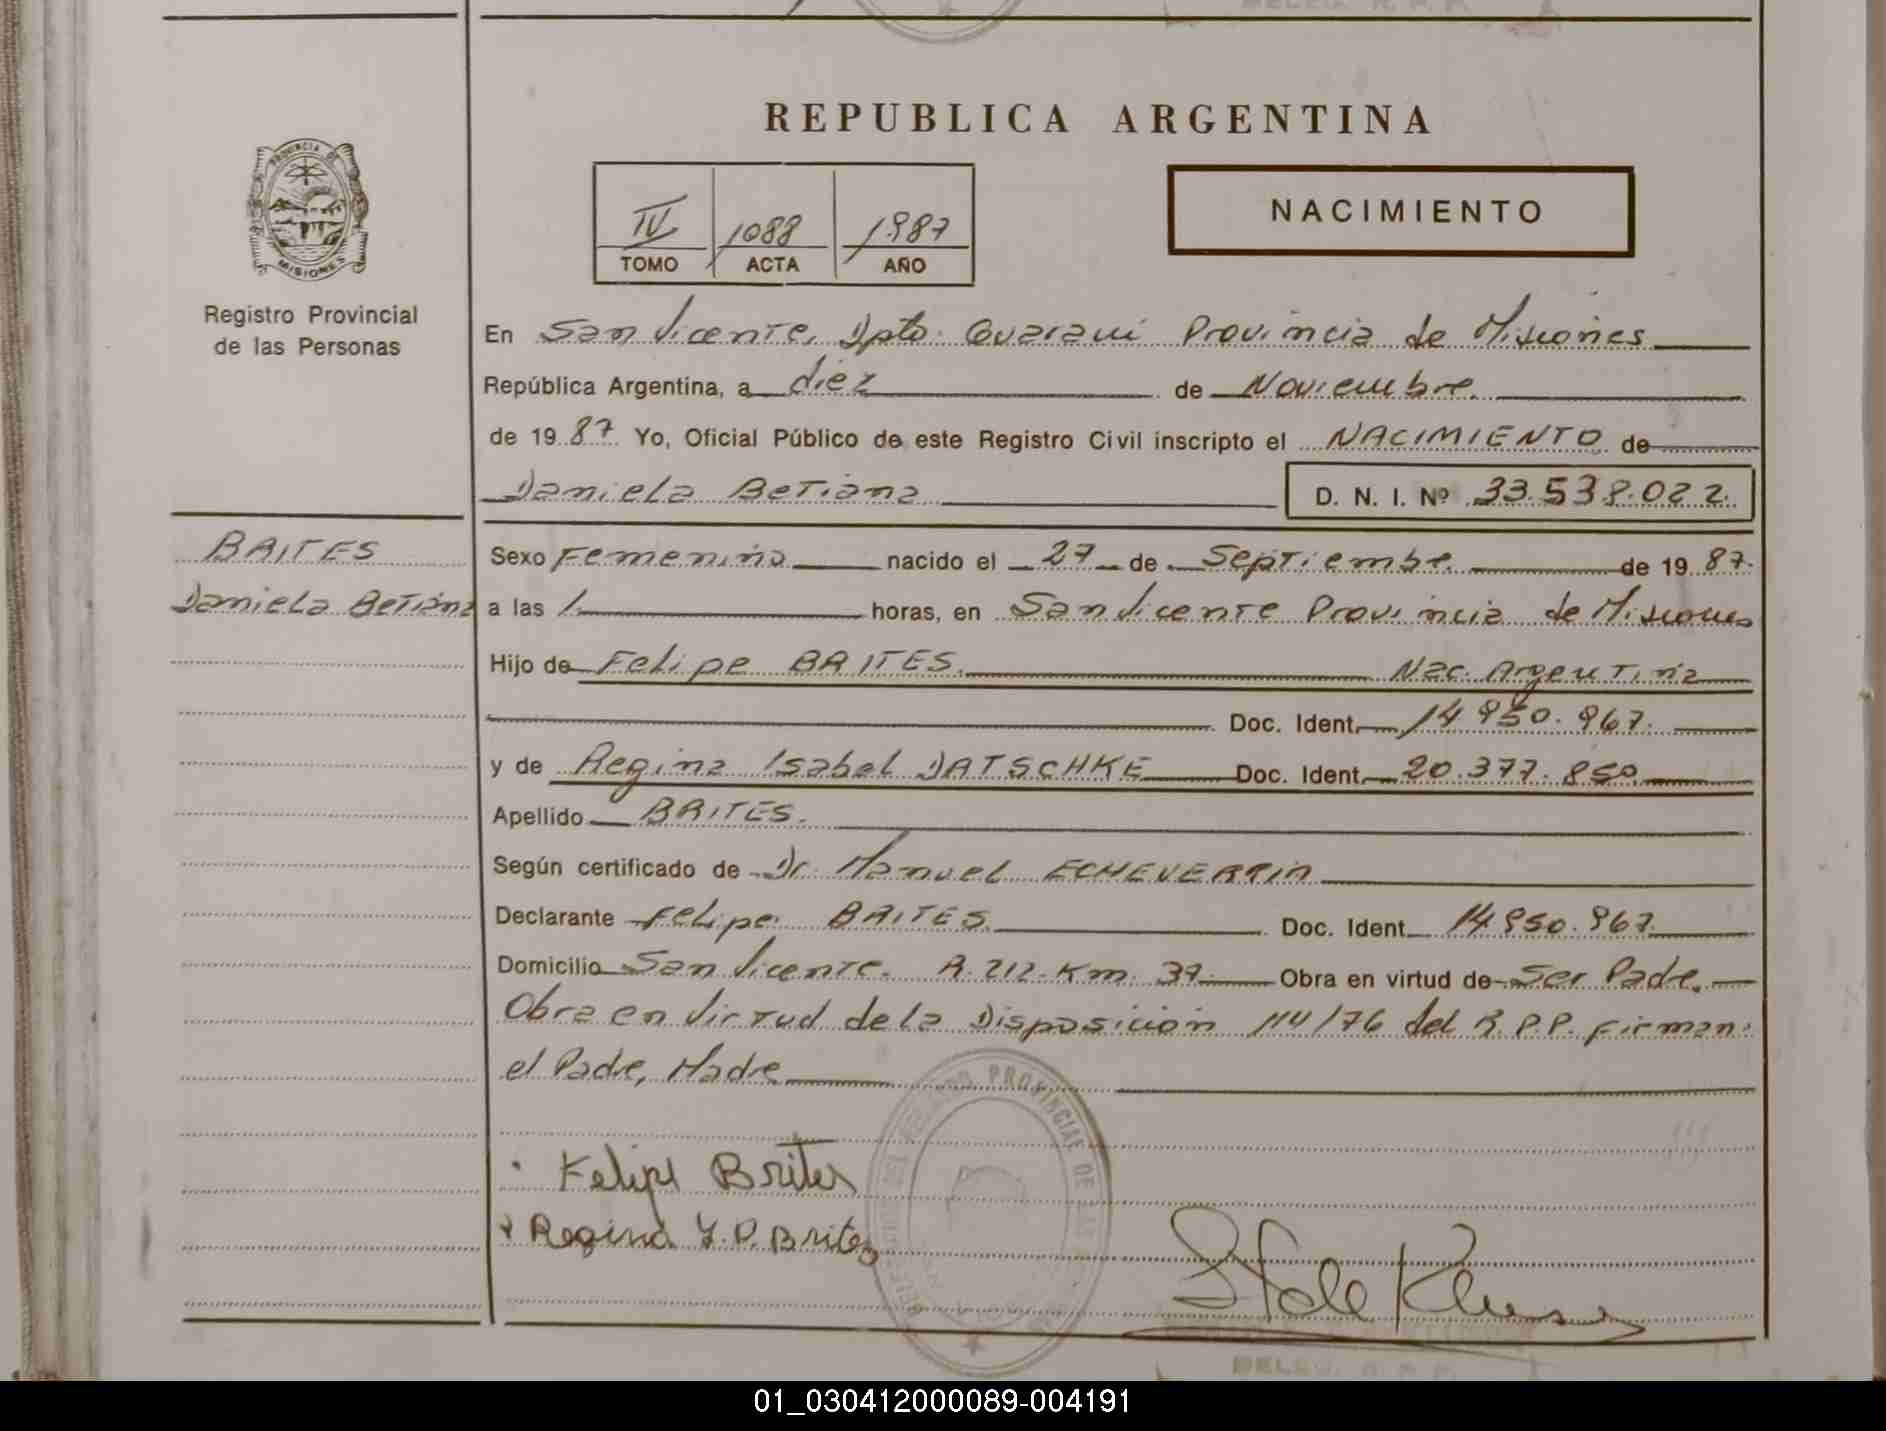 REPUBLICA ARGENTINA
PROVINCIA DE
MISIONES
Registro Provincial
de las Personas
IV 1088 1987
TOMO ACTA AÑO
NACIMIENTO
En San Vicente, Dpto. Guarani Provincia de Misiones
República Argentina, a diez de Noviembre.
de 1987. Yo, Oficial Público de este Registro Civil inscripto el NACIMIENTO de
Daniela Betiana D. N. I. Nº 33.538.022.
BRITES
Daniela Betiana
Sexo Femenino nacido el 27 de Septiembre. de 1987.
a las 1. horas, en San Vicente Provincia de Misiones
Hijo de Felipe BRITES. Nac. Argentina
Doc. Ident. 14.950.967.
y de Regina Isabel DATSCHKE Doc. Ident. 20.377.850
Apellido BRITES.
Según certificado de Dr. Manuel ECHEVERRIA
Declarante Felipe BRITES. Doc. Ident. 14.950.967.
Domicilio San Vicente. R. 212. Km. 37 Obra en virtud de Ser Padre.
Obra en Virtud de la Disposición 114/76 del R.P.P. Firman:
el Padre, Madre
Felipe Brites
Regina I. D. Brites
REGISTRO PROVINCIAL DE LAS
01_030412000089-004191